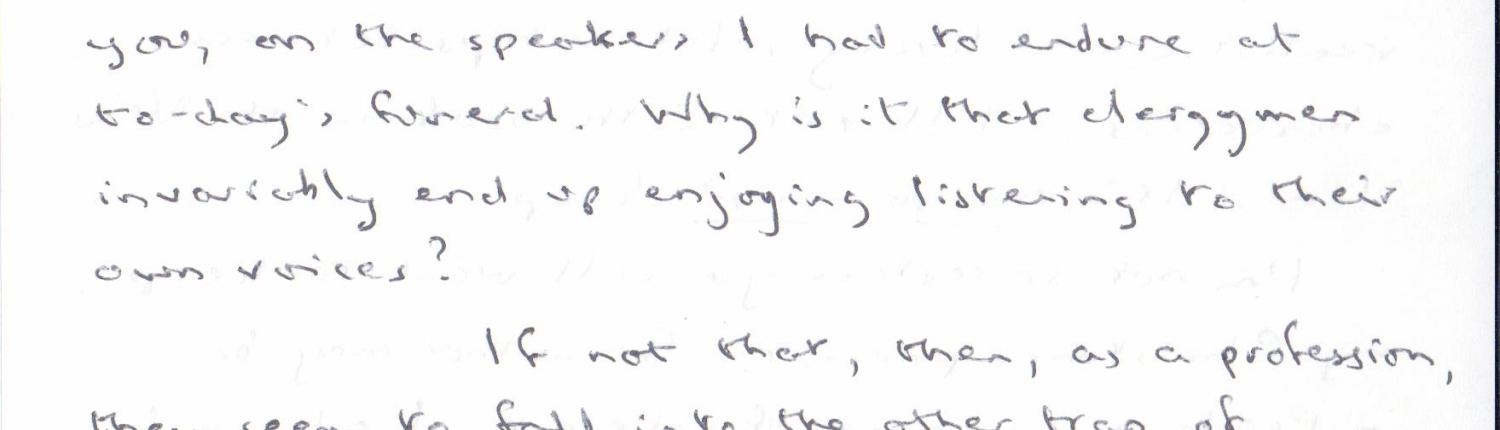 you, on the speakers I had to endure at
to-day's funeral. Why is it that clergymen
invariably end up enjoying listening to their
own voices?
If not that, then, as a profession,
they seem to fall into the other trap of